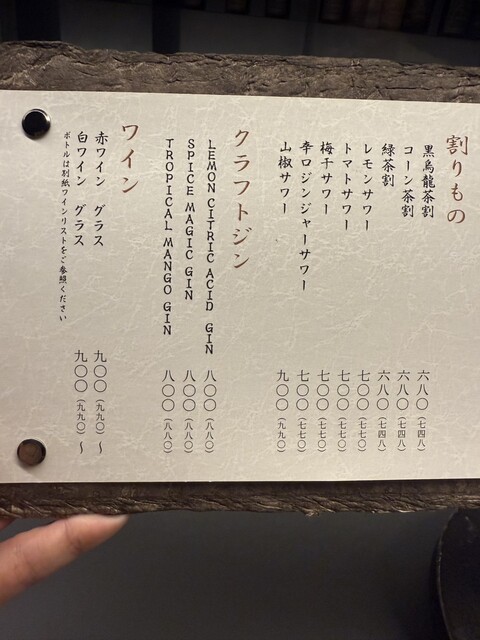 割りもの
黒烏龍茶割 六八〇(七四八)
コーン茶割 六八〇(七四八)
緑茶割 六八〇(七四八)
レモンサワー 七〇〇(七七〇)
トマトサワー 七〇〇(七七〇)
梅干サワー 七〇〇(七七〇)
辛口ジンジャーサワー 七〇〇(七七〇)
山椒サワー 九〇〇(九九〇)
クラフトジン
LEMON CITRIC ACID GIN 八〇〇(八八〇)
SPICE MAGIC GIN 八〇〇(八八〇)
TROPICAL MANGO GIN 八〇〇(八八〇)
ワイン
赤ワイン グラス 九〇〇(九九〇)〜
白ワイン グラス 九〇〇(九九〇)〜
ボトルは別紙ワインリストをご参照ください